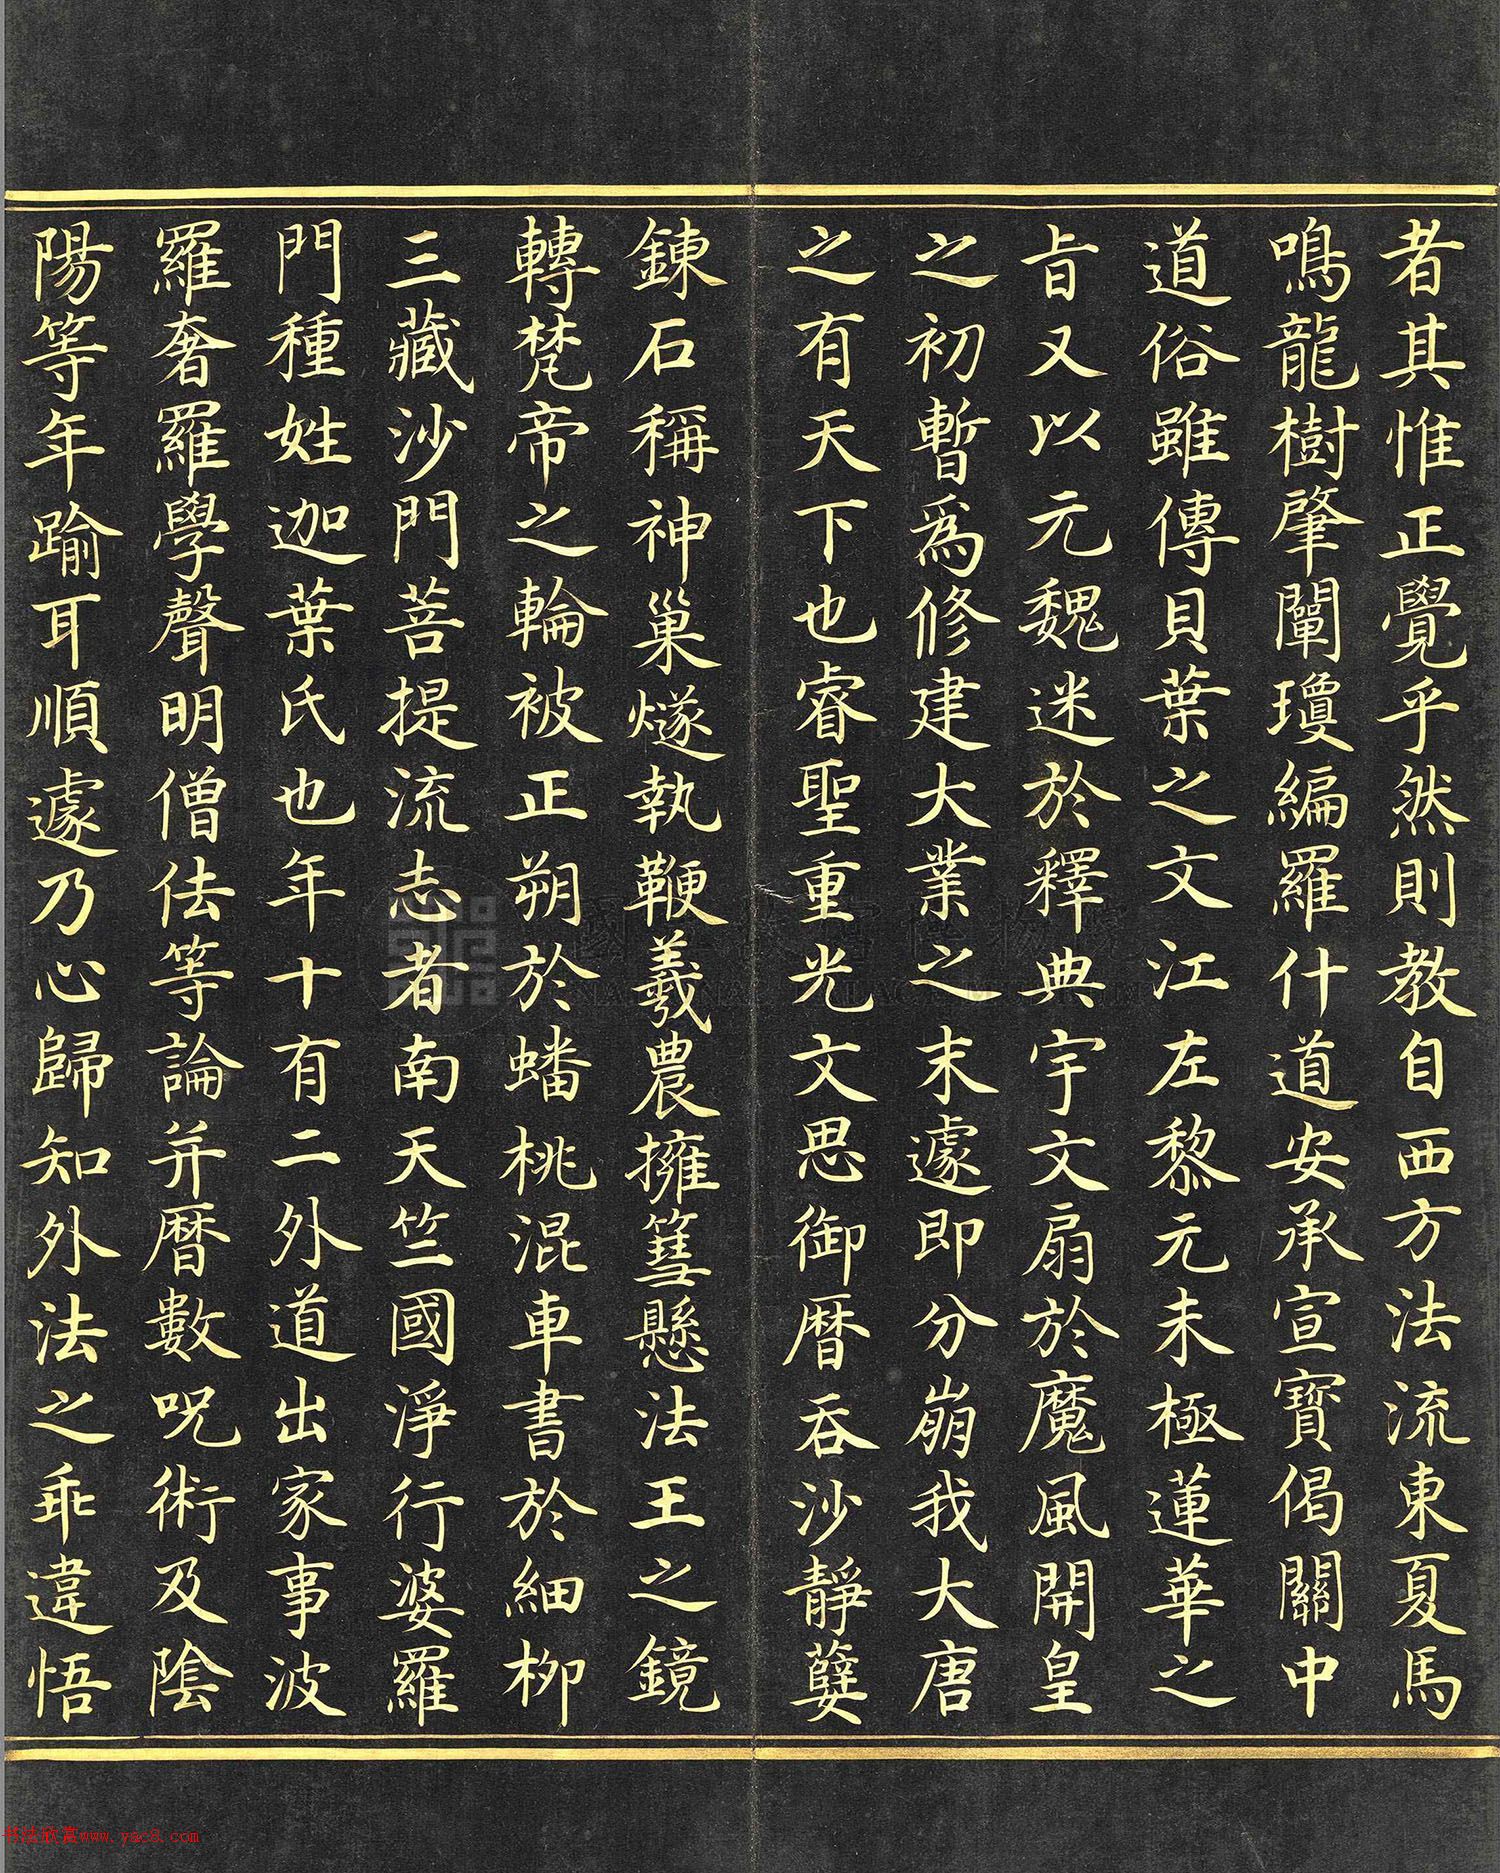 者其惟正覺乎然則教自西方法流東夏馬
鳴龍樹肇闡瓊編羅什道安承宣寶偈關中
道俗雖傳貝葉之文江左黎元未極蓮華之
旨又以元魏迷於釋典宇文扇於魔風開皇
之初暫為修建大業之末遽即分崩我大唐
之有天下也睿聖重光文思御曆吞沙靜蘖
鍊石稱神巢燧執鞭羲農擁篲懸法王之鏡
轉梵帝之輪被正朔於蟠桃混車書於細柳
三藏沙門菩提流志者南天竺國淨行婆羅
門種姓迦葉氏也年十有二外道出家事波
羅奢羅學聲明僧佉等論并曆數呪術及陰
陽等年踰耳順遽乃心歸知外法之乖違悟
國立故宮博物院
NATIONAL PALACE MUSEUM
书法欣赏www.yac8.com